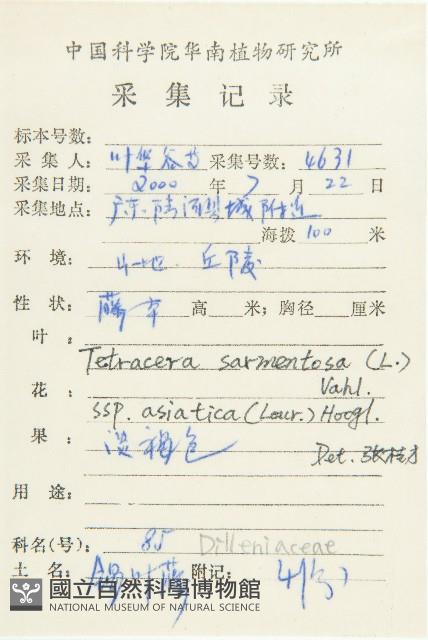 中国科学院华南植物研究所
采集记录
标本号数:
采集人: 叶华谷 采集号数: 4631
采集日期: 2000 年 7 月 22 日
采集地点: 广东 城附近
海拨 100 米
环境: 山地 丘陵
性状: 藤本 高 米; 胸径 厘米
叶:
Tetracera sarmentosa (L.)
Vahl.
花:
ssp. asiatica (Lour.) Hoogl.
果: 淡褐色
Det. 张桂才
用途:
科名(号): 85 Dilleniaceae
土名: 锡叶藤 附记:
國立自然科學博物館
NATIONAL MUSEUM OF NATURAL SCIENCE